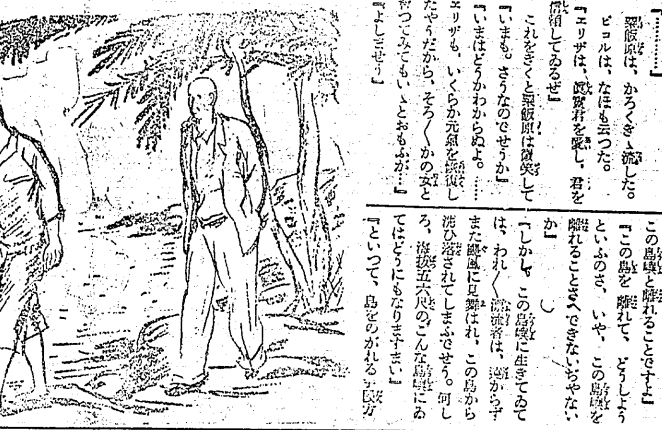 『…………』
粟飯原は、かろくきゝ流した。
ピコルは、なほも云つた。
『エリザは、眞實君を愛し、君を
信頼してゐるぜ』
これをきくと粟飯原は微笑して
『いまも、さうなのでせうか』
『いまはどうかわからぬよ。……
エリザも、いくらか元氣を恢復し
たやうだから、そろ〳〵かの女と
つてみてもいゝとおもふが……』
『よしませう』
この島嶼と離れることですよ』
『この島を離れて、どうしよう
といふのさ、いや、この島嶼を
離れることさへできないぢやない
か』
『しかし、この島嶼に生きてゐて
は、われ〳〵漂流者は、遠からず
また颶風に見舞はれ、この島から
洗ひ落されてしまふでせう。何し
ろ、海拔五六尺のこんな島嶼にゐ
てはどうにもなりますまい』
『といつて、島をのがれる